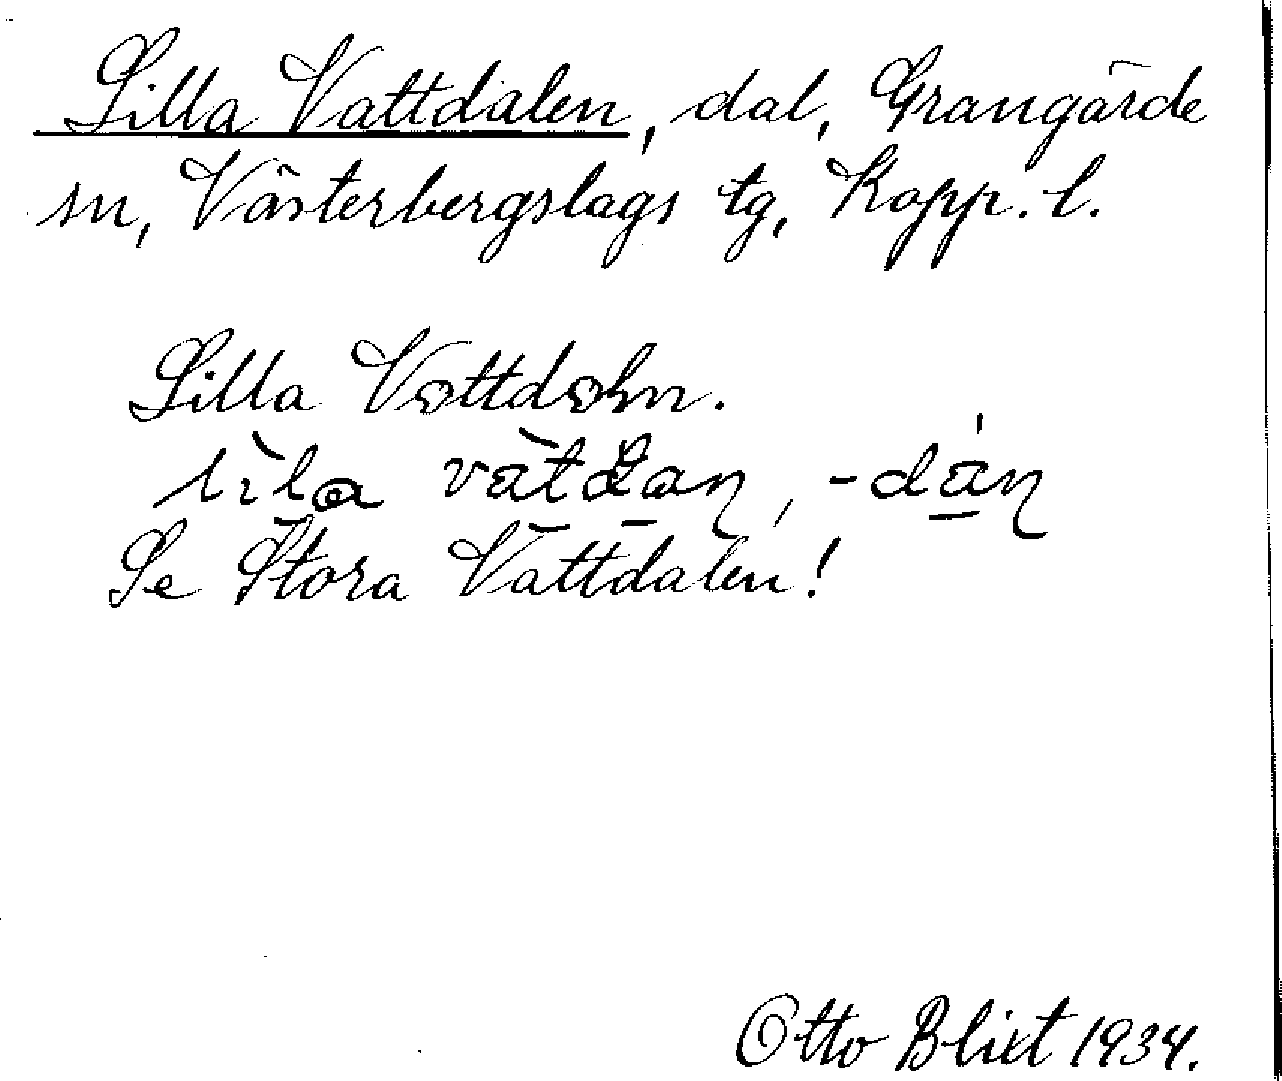 Lilla Vattdalen, dal, Grangärde
sn, Västerbergslags tg, Kopp. l.
Lilla Vattdaln.
Se Stora Vattdalen!
Otto Blixt 1934.